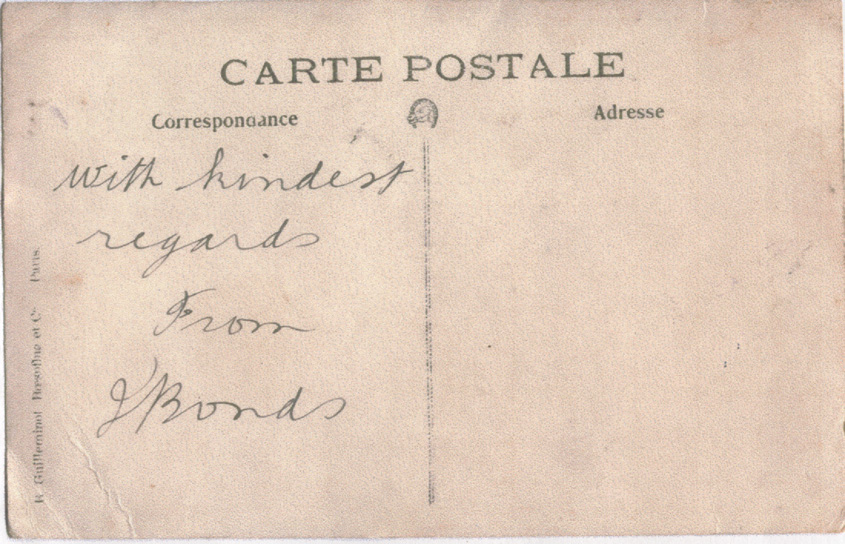 CARTE POSTALE
Correspondance
Adresse
With kindest
regards
From
J Bonds
R. Guilleminot Boespflug et Cie Paris.